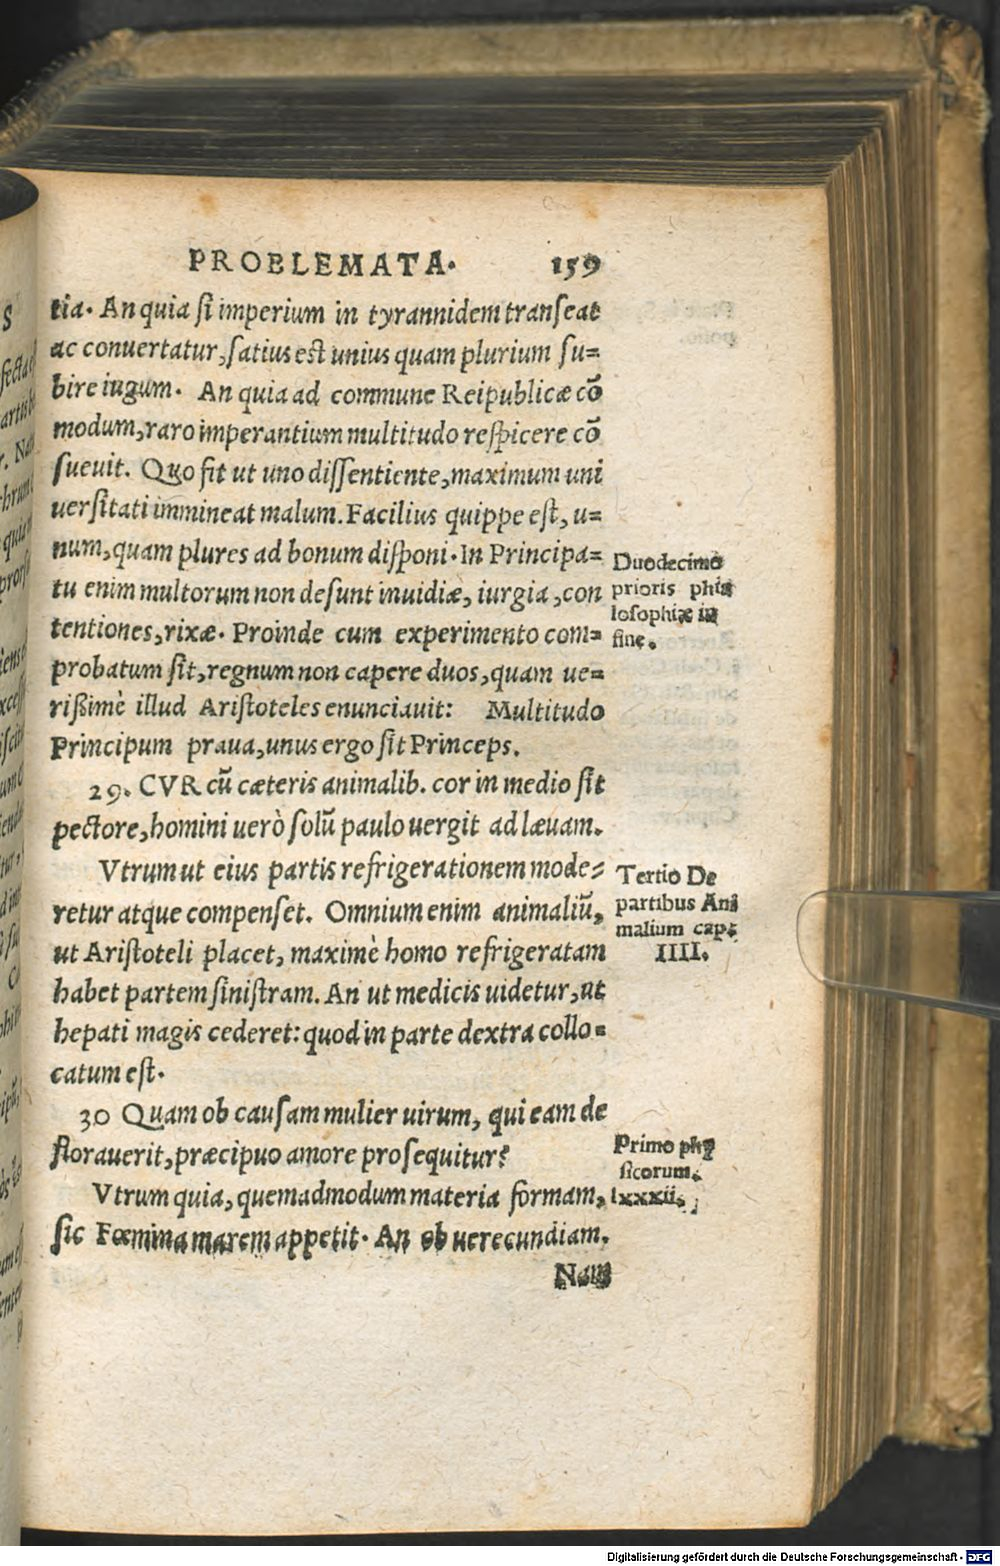 PROBLEMATA. 159
tia. An quia si imperium in tyrannidem transeat
ac conuertatur, satius est unius quam plurium su=
bire iugum. An quia ad commune Reipublicæ cō
modum, raro imperantium multitudo respicere cō
sueuit. Quo fit ut uno dissentiente, maximum uni
uersitati immineat malum. Facilius quippe est, u=
num, quam plures ad bonum disponi. In Principa=
tu enim multorum non desunt inuidiæ, iurgia, con
tentiones, rixæ. Proinde cum experimento com=
probatum sit, regnum non capere duos, quam ue=
rißimè illud Aristoteles enunciauit: Multitudo
Principum praua, unus ergo sit Princeps.
Duodecimo
prioris phia
losophiæ in
fine.
29. CVR cū cæteris animalib. cor in medio sit
pectore, homini uerò solū paulo uergit ad læuam.
Vtrum ut eius partis refrigerationem mode=
retur atque compenset. Omnium enim animaliū,
ut Aristoteli placet, maximè homo refrigeratam
habet partem sinistram. An ut medicis uidetur, ut
hepati magis cederet: quod in parte dextra collo=
catum est.
Tertio De
partibus Ani
malium cap.
IIII.
30 Quam ob causam mulier uirum, qui eam de
florauerit, præcipuo amore prosequitur?
Vtrum quia, quemadmodum materia formam,
sic Fœmina marem appetit. An ob uerecundiam.
Primo phy
sicorum.
lxxxii.
Nam
S
Digitalisierung gefördert durch die Deutsche Forschungsgemeinschaft - DFG